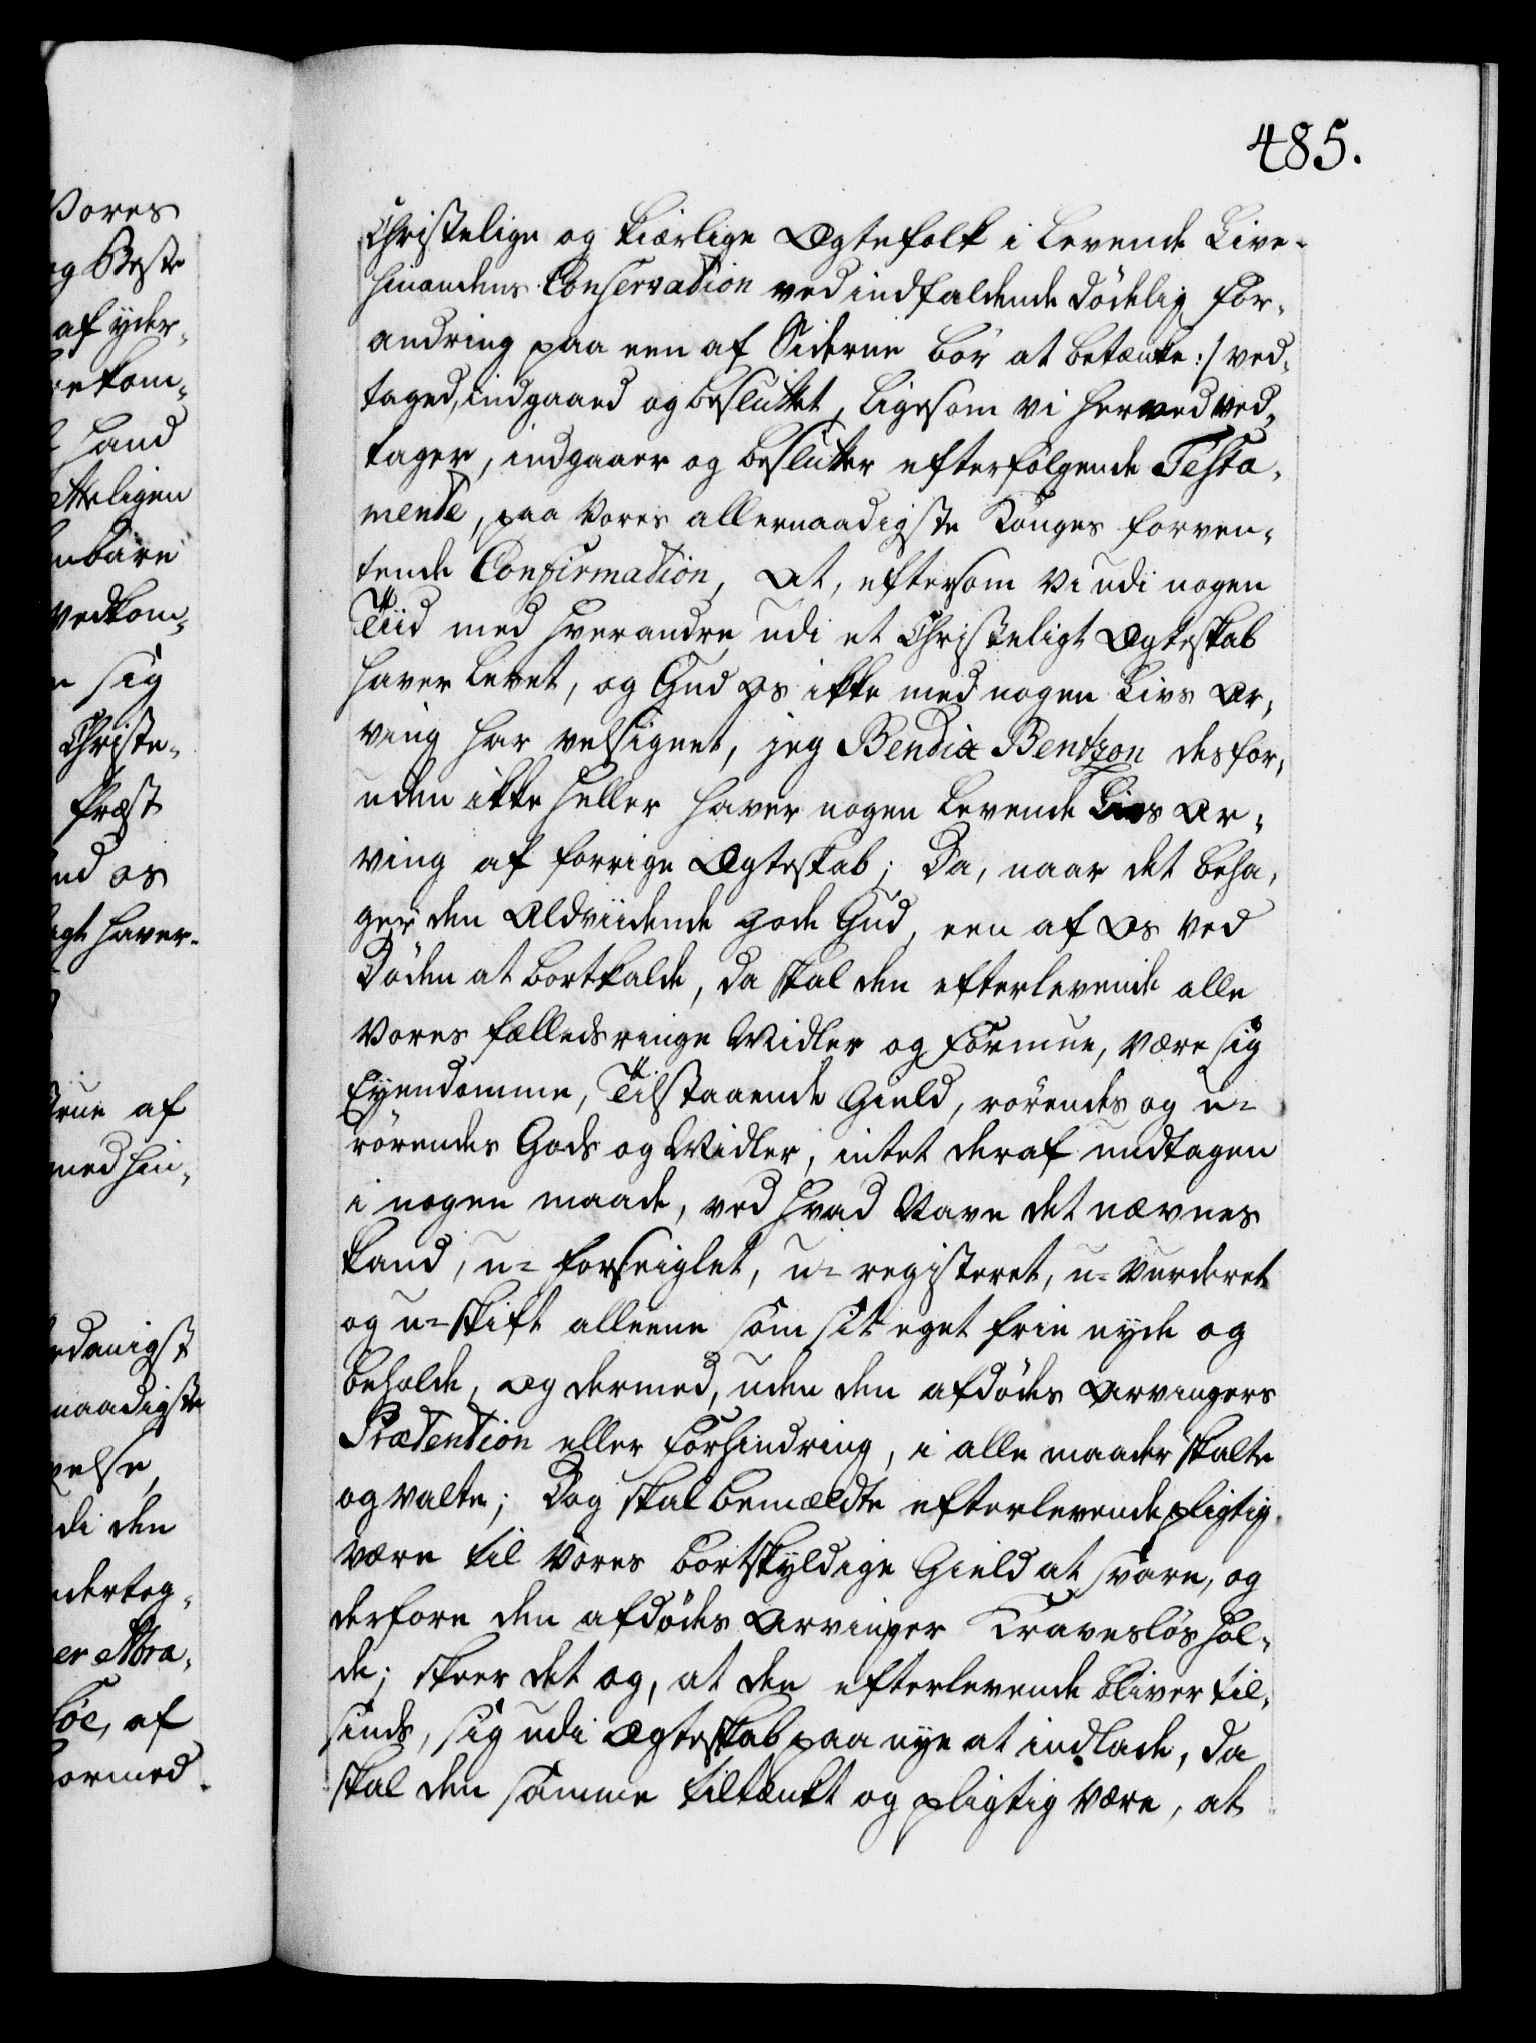 Vores
og Beste
af yder-
kom-
hand
etteligen
nbare
vedkom-
sig
Christe-
Præst
ud os
igt haver-
rue af
med hin-
danigst
naadigste
else,
di den
ndertog-
er Abra-
öe, af
ormed-
485.
Christelige og kiærlige Ægtefolk i levende Live-
hinandens Conservation ved indfaldende dödelig For-
andring paa een af Siderne bör at betænke :/ ved-
taged, indgaaed og besluttet, ligesom vi herved ved-
tager, indgaaer og beslutter efterfölgende Testa-
mente, paa Vores allernaadigste Konges forven-
tende Confirmation, At, eftersom Vi udi nogen
Tiid med hverandre udi et Christeligt Ægteskab
haver levet, og Gud Os ikke med nogen Livs Ar-
ving har velsignet, jeg Bendix Bentzon desfor-
uden ikke heller haver nogen levende Livs Ar-
ving af forrige Ægteskab; Da, naar det beha-
ger den Aldviidende gode Gud, een af Os ved
Döden at bortkalde, da skal den efterlevende alle
Vores fælleds ringe Midler og Formue, være sig
Eyendomme, Tilstaaende Gield, rörendes og u-
rörendes Gods og Midler, intet deraf undtagen
i nogen maade, ved hvad Navn det nævnes
kand, u-forseiglet, u-registeret, u-vurderet
og u-skift alleene som sit eget frie nyde og
beholde, og dermed, uden den afdödes Arvingers
Prætention eller Forhindring, i alle maader skalte
og valte; Dog skal bemældte efterlevende pligtig
være til Vores bortskyldige Gield at svare, og
derfore den afdödes Arvinger Kravesløs hol-
de; skeer det og, at den efterlevende bliver til-
sinds, sig udi Ægteskab paa nye at indlade, da
skal den samme tiltænkt og pligtig være, at